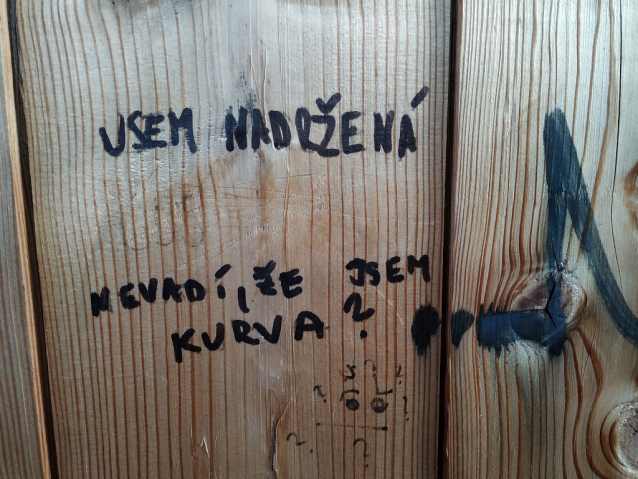 JSEM NADRŽENÁ
NEVADÍ, ŽE JSEM
KURVA?